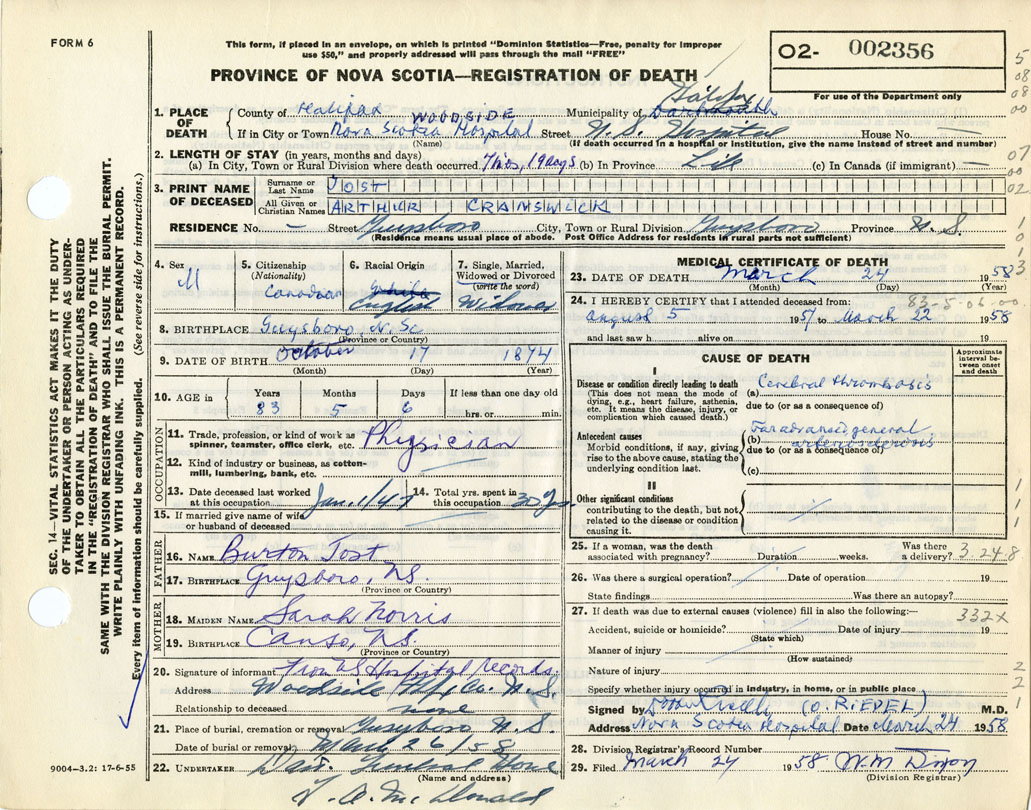 FORM 6
This form, if placed in an envelope, on which is printed "Dominion Statistics—Free, penalty for improper
use $50," and properly addressed will pass through the mail "FREE"
PROVINCE OF NOVA SCOTIA—REGISTRATION OF DEATH
02- 002356
For use of the Department only
1. PLACE OF DEATH
County of Halifax Municipality of Halifax Dartmouth
WOODSIDE
If in City or Town Nova Scotia Hospital Street N.S. Hospital House No. —
(Name) (If death occurred in a hospital or institution, give the name instead of street and number)
2. LENGTH OF STAY (in years, months and days)
(a) In City, Town or Rural Division where death occurred 7 mos, 19 days (b) In Province Life (c) In Canada (if immigrant) —
3. PRINT NAME OF DECEASED
Surname or Last Name JOST
All Given or Christian Names ARTHUR CRANSWICK
RESIDENCE No. — Street Guysboro City, Town or Rural Division Guysboro Province N.S.
(Residence means usual place of abode. Post Office Address for residents in rural parts not sufficient)
4. Sex M
5. Citizenship (Nationality) Canadian
6. Racial Origin White English
7. Single, Married, Widowed or Divorced (write the word) Widower
8. BIRTHPLACE Guysboro, N. Sc
(Province or Country)
9. DATE OF BIRTH October 17 1874
(Month) (Day) (Year)
10. AGE in Years 83 Months 5 Days 6 If less than one day old hrs. or min.
OCCUPATION
11. Trade, profession, or kind of work as spinner, teamster, office clerk, etc. Physician
12. Kind of industry or business, as cotton-mill, lumbering, bank, etc.
13. Date deceased last worked at this occupation Jan. 1/47
14. Total yrs. spent in this occupation 30 yrs.
15. If married give name of wife or husband of deceased
FATHER
16. NAME Burton Jost
17. BIRTHPLACE Guysboro, NS.
(Province or Country)
MOTHER
18. MAIDEN NAME Sarah Norris
19. BIRTHPLACE Canso, NS.
(Province or Country)
20. Signature of informant From NS Hospital records.
Address Woodside Hfx Co. N.S.
Relationship to deceased none
21. Place of burial, cremation or removal Guysboro N.S.
Date of burial or removal March 26/58
22. UNDERTAKER Funeral Home
(Name and address)
McDonald
MEDICAL CERTIFICATE OF DEATH
23. DATE OF DEATH March 24 1958
(Month) (Day) (Year)
24. I HEREBY CERTIFY that I attended deceased from: 83-5-06-00
August 5 1957 to March 22 1958
and last saw h alive on 19
CAUSE OF DEATH
Approximate interval between onset and death
I
Disease or condition directly leading to death
(This does not mean the mode of dying, e.g., heart failure, asthenia, etc. It means the disease, injury, or complication which caused death.)
(a) Cerebral thrombosis
due to (or as a consequence of)
Antecedent causes
Morbid conditions, if any, giving rise to the above cause, stating the underlying condition last.
(b) Far advanced general arteriosclerosis
due to (or as a consequence of)
(c)
II
Other significant conditions
contributing to the death, but not related to the disease or condition causing it.
25. If a woman, was the death associated with pregnancy? Duration weeks. Was there a delivery? 3.24.8
26. Was there a surgical operation? Date of operation 19
State findings Was there an autopsy?
27. If death was due to external causes (violence) fill in also the following:— 332X
Accident, suicide or homicide? Date of injury 19
(State which)
Manner of injury
(How sustained)
Nature of injury
Specify whether injury occurred in industry, in home, or in public place
Signed by (O. RIEDEL) M.D.
Address Nova Scotia Hospital Date March 24 1958
28. Division Registrar's Record Number
29. Filed March 24 1958 W.M. Dixon
(Division Registrar)
SEC. 14—VITAL STATISTICS ACT MAKES IT THE DUTY
OF THE UNDERTAKER OR PERSON ACTING AS UNDER-
TAKER TO OBTAIN ALL THE PARTICULARS REQUIRED
IN THE "REGISTRATION OF DEATH" AND TO FILE THE
SAME WITH THE DIVISION REGISTRAR WHO SHALL ISSUE THE BURIAL PERMIT.
WRITE PLAINLY WITH UNFADING INK. THIS IS A PERMANENT RECORD.
Every item of information should be carefully supplied. (See reverse side for instructions.)
9004—3.2: 17-6-55
5
08
08
00
07
00
02
1
0
1
3
1
1
1
2
2
1